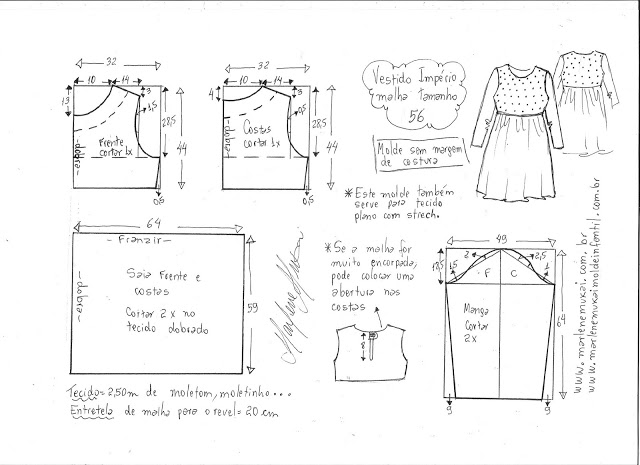 32
10
14
3
13
1,5
28,5
44
dobra
Frente
cortar 1x
0,5
32
10
14
3
4
0,5
28,5
44
dobra
Costas
cortar 1x
0,5
Vestido Império
malha tamanho
56
Molde sem margem
de costura
*Este molde também
serve para tecido
plano com strech.
64
Franzir
dobra
Saia Frente e
costas
Cortar 2x no
tecido dobrado
59
Marlene Mukai
*Se a malha for
muito encorpada,
pode colocar uma
abertura nas
costas
8
49
2
2,5
1,5
1
F
C
Manga
Cortar
2x
64
9
9
www.marlenemukai.com.br
www.marlenemukaimoldeinfantil.com.br
Tecido= 2,50m de moletom, moletinho...
Entretela de malha para o revel= 20 cm